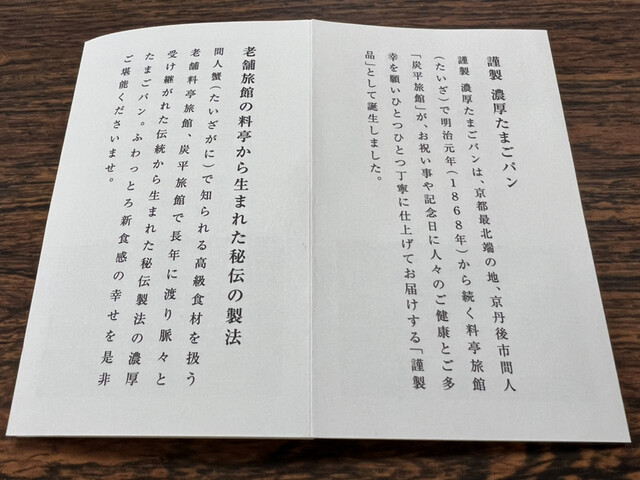 謹製 濃厚たまごパン
謹製 濃厚たまごパンは、京都最北端の地、京丹後市間人
(たいざ)で明治元年(1868年)から続く料亭旅館
「炭平旅館」が、お祝い事や記念日に人々のご健康とご多
幸を願いひとつひとつ丁寧に仕上げてお届けする「謹製
品」として誕生しました。
老舗旅館の料亭から生まれた秘伝の製法
間人蟹(たいざがに)で知られる高級食材を扱う
老舗料亭旅館、炭平旅館で長年に渡り脈々と
受け継がれた伝統から生まれた秘伝製法の濃厚
たまごパン。ふわっとろ新食感の幸せを是非
ご堪能くださいませ。